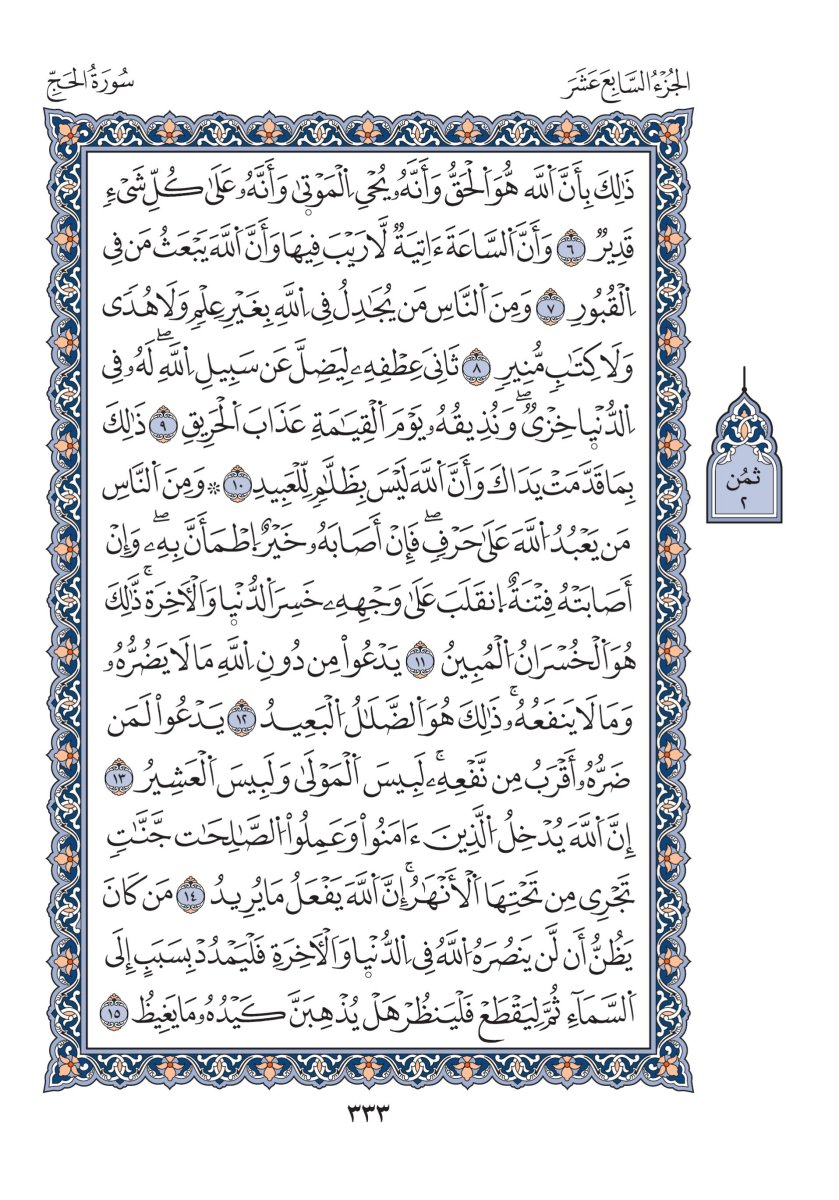 الجُزْءُ السَّابِعَ عَشَرَ
سُورَةُ الحَجِّ
ذَٰلِكَ بِأَنَّ ٱللَّه هُّوَ ٱلْحَقُّ وَأَنَّهُۥ يُحْيِ ٱلْمَوْتىٰ وَأَنَّهُۥ عَلَىٰ كُلِّ شَىْءٍ
قَدِيرٌ ٦ وَأَنَّ ٱلسَّاعَةَ ءَاتِيَةٌ لَّا رَيْبَ فِيهَا وَأَنَّ ٱللَّهَ يَبْعَثُ مَن فِى
ٱلْقُبُورِ ٧ وَمِنَ ٱلنَّاسِ مَن يُجَٰدِلُ فِى ٱللَّهِ بِغَيْرِ عِلْمٍ وَلَا هُدًى
وَلَا كِتَٰبٍ مُّنِيرٍ ٨ ثَانِىَ عِطْفِهِۦ لِيَضِلَّ عَن سَبِيلِ ٱللَّهِۖ لَهُۥ فِى
ٱلدُّنْيا خِزْىٌۖ وَنُذِيقُهُۥ يَوْمَ ٱلْقِيَٰمَةِ عَذَابَ ٱلْحَرِيقِ ٩ ذَٰلِكَ
بِمَا قَدَّمَتْ يَدَاكَ وَأَنَّ ٱللَّهَ لَيْسَ بِظَلَّٰمٍ لِّلْعَبِيدِ ١٠ ۞ وَمِنَ ٱلنَّاسِ
مَن يَعْبُدُ ٱللَّهَ عَلَىٰ حَرْفٍۖ فَإِنْ أَصَابَهُۥ خَيْرٌ ٱطْمَأَنَّ بِهِۦۖ وَإِنْ
أَصَابَتْهُ فِتْنَةٌ ٱنقَلَبَ عَلَىٰ وَجْهِهِۦ خَسِرَ ٱلدُّنْيا وَٱلْأَخِرَةۚ ذَّٰلِكَ
هُوَ ٱلْخُسْرَانُ ٱلْمُبِينُ ١١ يَدْعُوا۟ مِن دُونِ ٱللَّهِ مَا لَا يَضُرُّهُۥ
وَمَا لَا يَنفَعُهُۥۚ ذَٰلِكَ هُوَ ٱلضَّلَٰلُ ٱلْبَعِيدُ ١٢ يَدْعُوا۟ لَمَن
ضَرُّهُۥ أَقْرَبُ مِن نَّفْعِهِۦۚ لَبِيسَ ٱلْمَوْلَىٰ وَلَبِيسَ ٱلْعَشِيرُ ١٣
إِنَّ ٱللَّهَ يُدْخِلُ ٱلَّذِينَ ءَامَنُوا۟ وَعَمِلُوا۟ ٱلصَّٰلِحَٰت جَّنَّٰتٍ
تَجْرِى مِن تَحْتِهَا ٱلْأَنْهَٰرُۚ إِنَّ ٱللَّهَ يَفْعَلُ مَا يُرِيدُ ١٤ مَن كَانَ
يَظُنُّ أَن لَّن يَنصُرَهُ ٱللَّهُ فِى ٱلدُّنْيا وَٱلْأَخِرَةِ فَلْيَمْدُدْ بِسَبَبٍ إِلَى
ٱلسَّمَآءِ ثُمَّ لِيَقْطَعْ فَلْيَنظُرْ هَلْ يُذْهِبَنَّ كَيْدُهُۥ مَا يَغِيظُ ١٥
ثمُن
٢
٣٣٣